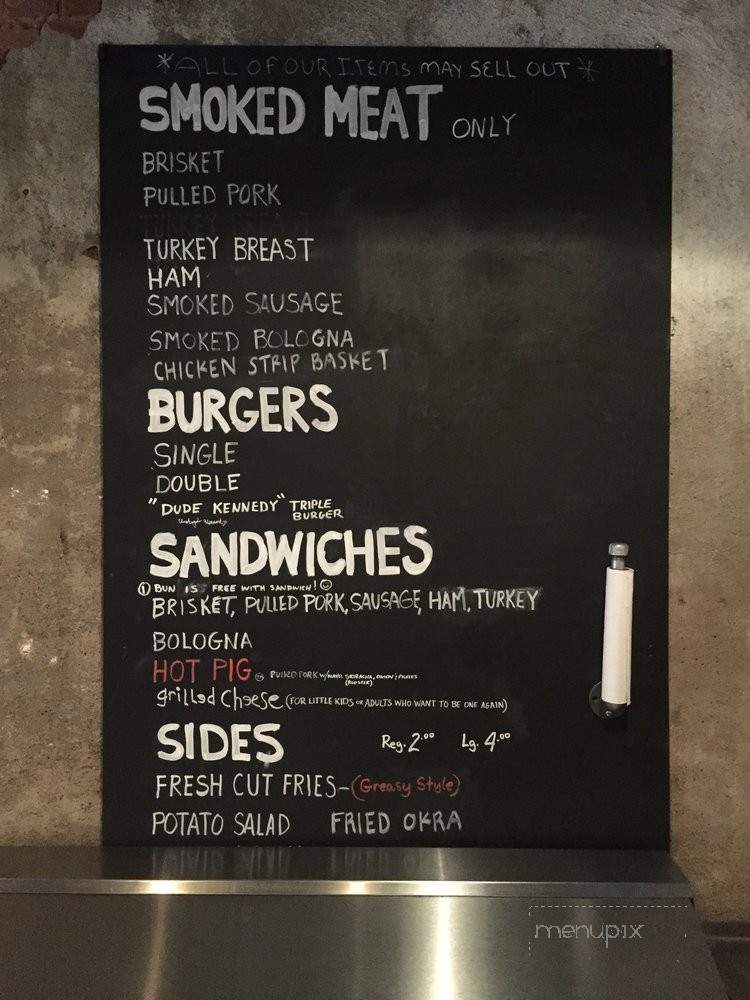 *ALL OF OUR ITEMS MAY SELL OUT*
SMOKED MEAT ONLY
BRISKET
PULLED PORK
TURKEY BREAST
HAM
SMOKED SAUSAGE
SMOKED BOLOGNA
CHICKEN STRIP BASKET
BURGERS
SINGLE
DOUBLE
"DUDE KENNEDY" TRIPLE BURGER
SANDWICHES
① BUN IS FREE WITH SANDWICH! ☺
BRISKET, PULLED PORK, SAUSAGE, HAM, TURKEY
BOLOGNA
HOT PIG PULLED PORK W/ SRIRACHA, ONION & PICKLES
(ROOSTER)
grilled Cheese (FOR LITTLE KIDS OR ADULTS WHO WANT TO BE ONE AGAIN)
SIDES Reg. 2.00 Lg. 4.00
FRESH CUT FRIES-(Greasy Style)
POTATO SALAD FRIED OKRA
menupix